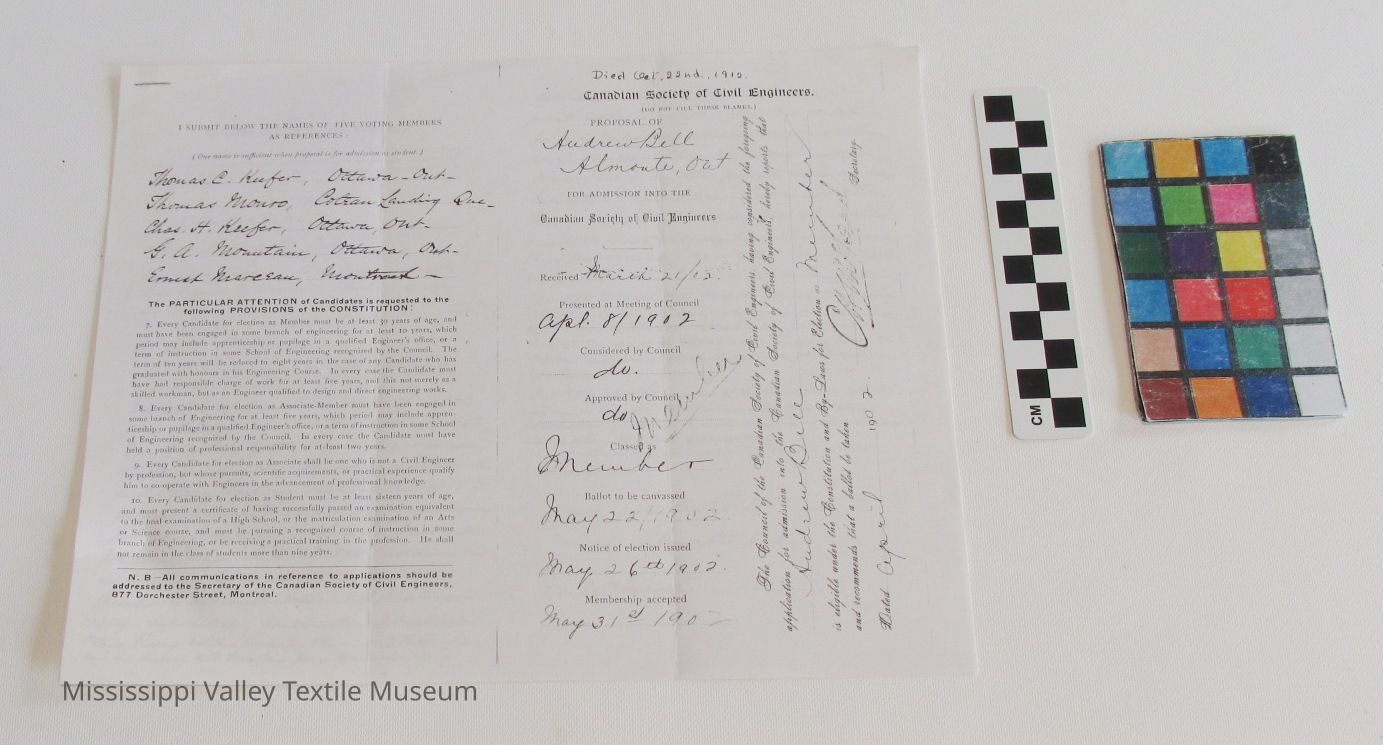 I SUBMIT BELOW THE NAMES OF FIVE VOTING MEMBERS
AS REFERENCES:
(One name is sufficient when proposal is for admission as student.)
Thomas C. Keefer, Ottawa - Ont-
Thomas Monro, Coteau Landing Que-
Chas. H. Keefer, Ottawa, Ont-
G. A. Mountain, Ottawa, Ont-
Ernest Marceau, Montreal -
The PARTICULAR ATTENTION of Candidates is requested to the
following PROVISIONS of the CONSTITUTION:
7. Every Candidate for election as Member must be at least 30 years of age, and
must have been engaged in some branch of engineering for at least 10 years, which
period may include apprenticeship or pupilage in a qualified Engineer's office, or a
term of instruction in some School of Engineering recognized by the Council. The
term of ten years will be reduced to eight years in the case of any Candidate who has
graduated with honours in his Engineering Course. In every case the Candidate must
have had responsible charge of work for at least five years, and this not merely as a
skilled workman, but as an Engineer qualified to design and direct engineering works.
8. Every Candidate for election as Associate-Member must have been engaged in
some branch of Engineering for at least five years, which period may include appren-
ticeship or pupilage in a qualified Engineer's office, or a term of instruction in some School
of Engineering recognized by the Council. In every case the Candidate must have
held a position of professional responsibility for at-least two years.
9. Every Candidate for election as Associate shall be one who is not a Civil Engineer
by profession, but whose pursuits, scientific acquirements, or practical experience qualify
him to co-operate with Engineers in the advancement of professional knowledge.
10. Every Candidate for election as Student must be at least sixteen years of age,
and must present a certificate of having successfully passed an examination equivalent
to the final examination of a High School, or the matriculation examination of an Arts
or Science course, and must be pursuing a recognized course of instruction in some
branch of Engineering, or be receiving a practical training in the profession. He shall
not remain in the class of students more than nine years.
N. B—All communications in reference to applications should be
addressed to the Secretary of the Canadian Society of Civil Engineers,
877 Dorchester Street, Montreal.
Died Oct. 22nd, 1910.
Canadian Society of Civil Engineers.
(DO NOT FILL THESE BLANKS.)
PROPOSAL OF
Andrew Bell
Almonte, Ont
FOR ADMISSION INTO THE
Canadian Society of Civil Engineers
Received March 21/12.
Presented at Meeting of Council
Apl. 8/1902
Considered by Council
do.
Approved by Council
do
Member
Classed as
Member
Ballot to be canvassed
May 22/1902
Notice of election issued
May 26th 1902.
Membership accepted
May 31st 1902
The Council of the Canadian Society of Civil Engineers, having considered the foregoing
application for admission into the Canadian Society of Civil Engineers, hereby reports that
Andrew Bell
is eligible under the Constitution and By-Laws for Election as Member
and recommends that a ballot be taken
Secretary
Dated April 1902
CM
Mississippi Valley Textile Museum